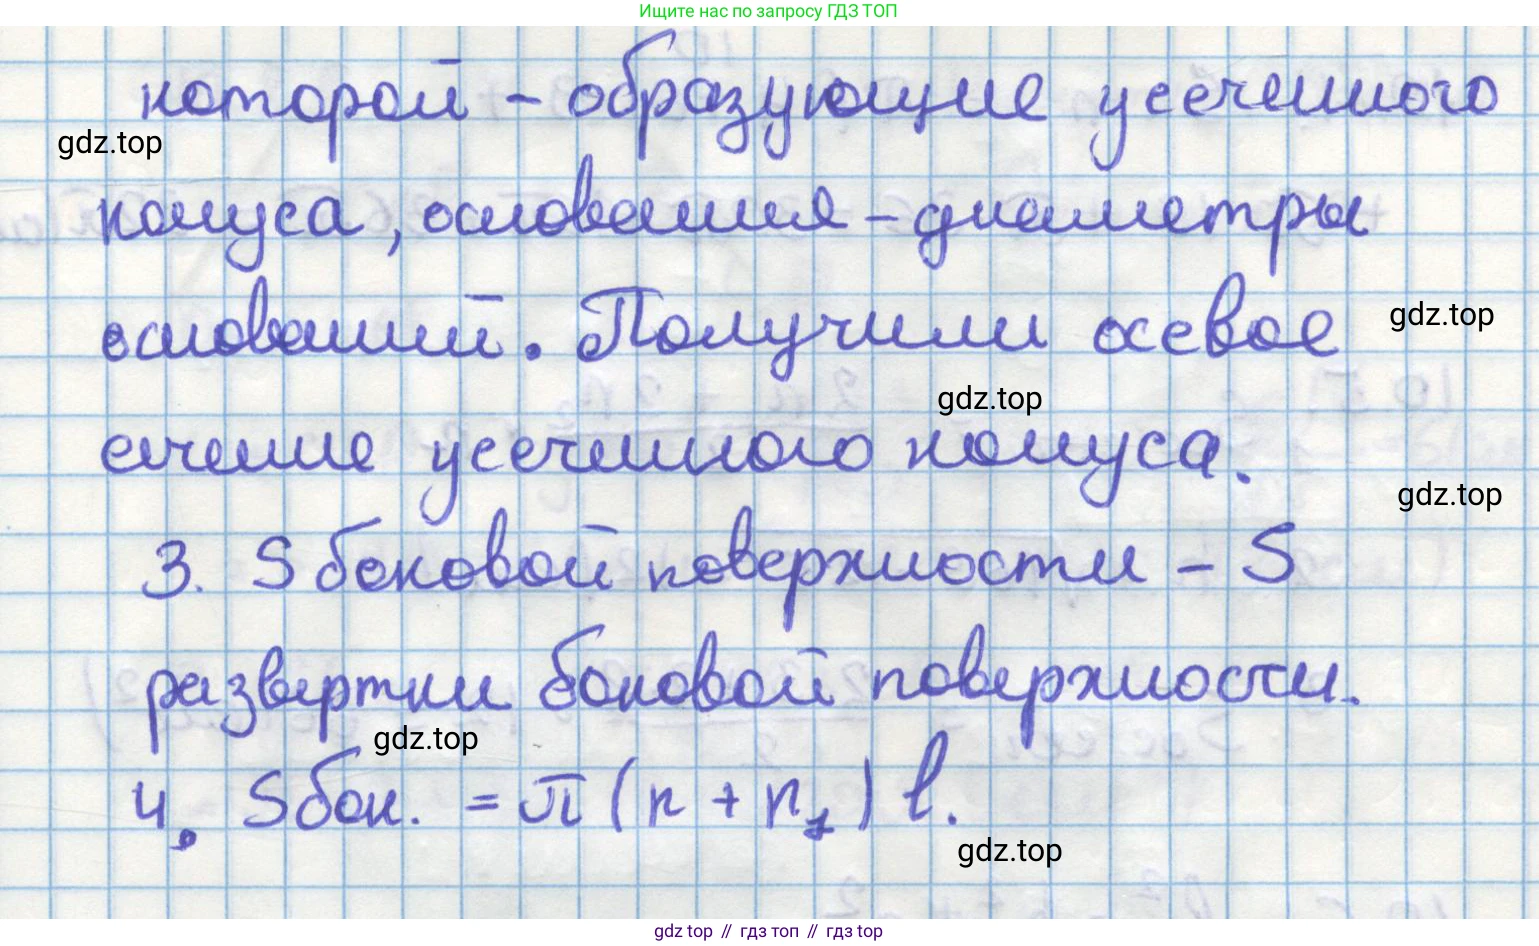 Ищите нас по запросу ГДЗ ТОП
которой – образующие усеченного
gdz.top
конуса, основания – диаметры
оснований. Получили осевое
gdz.top
gdz.top
сечение усеченного конуса.
gdz.top
3. S боковой поверхности – S
развертки боковой поверхности.
gdz.top
4. Sбок. = π(r + r₁) l.
gdz.top
gdz top // гдз топ // гдз top